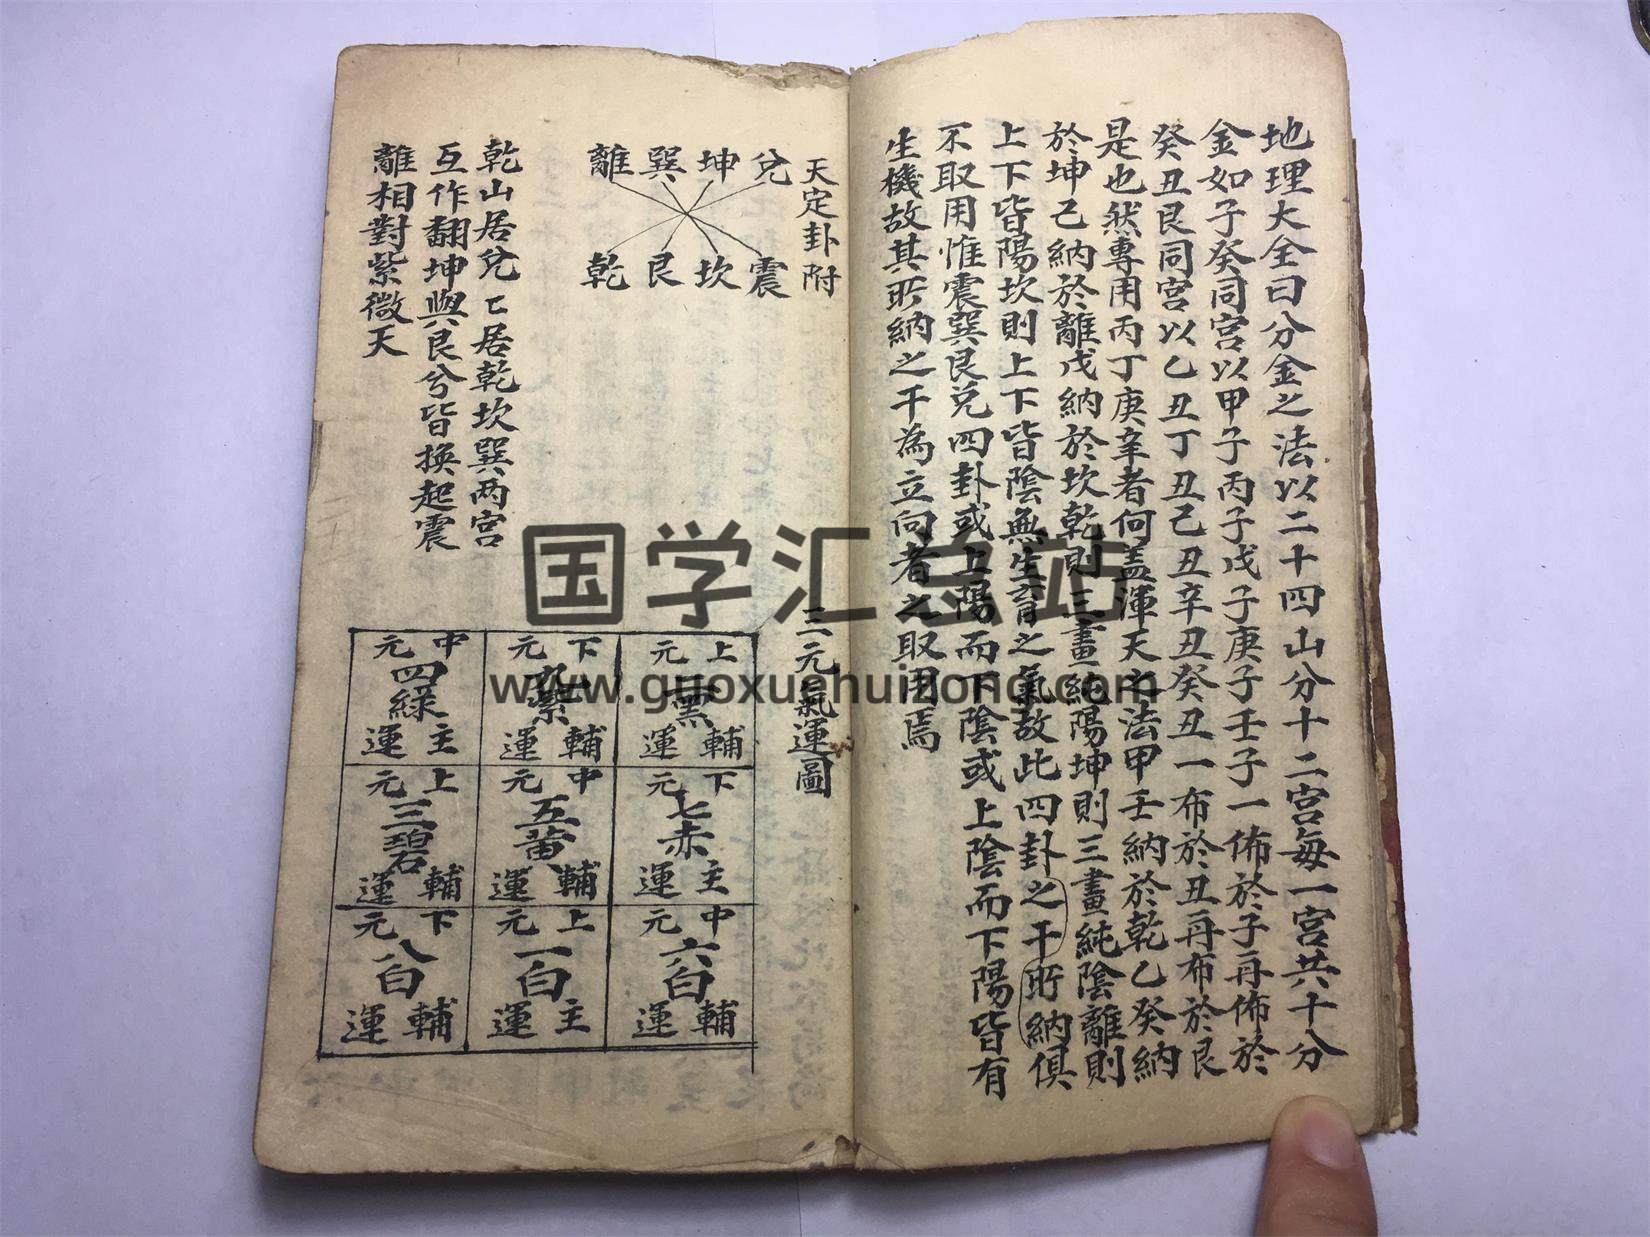 地理大全曰分金之法以二十四山分十二宮每一宮共十分
金如子癸同宮以甲子丙子戊子庚子壬子一佈於子再佈於
癸丑艮同宮以乙丑丁丑己丑辛丑癸丑一布於丑再布於艮
是也然專用丙丁庚辛者何盖渾天之法甲壬納於乾乙癸納
於坤己納於離戊納於坎乾則三畫純陽坤則三畫純陰離則
上下皆陽坎則上下皆陰無生育之氣故此四卦之干所納俱
不取用惟震巽艮兌四卦或上陽而下陰或上陰而下陽皆有
生機故其所納之干為立向者之取用焉
天定卦附
兌 坤 巽 離
震 坎 艮 乾
乾山居兌匕居乾坎巽两宮
互作翻坤與艮兮皆換起震
離相對紫微天
三元氣運圖
上元 二黑 輔運
下元 九紫 輔運
中元 四綠 主運
下元 七赤 主運
中元 五黃 輔運
上元 三碧 輔運
中元 六白 輔運
上元 一白 主運
下元 八白 輔運
国学汇总站
www.guoxuehuizong.com